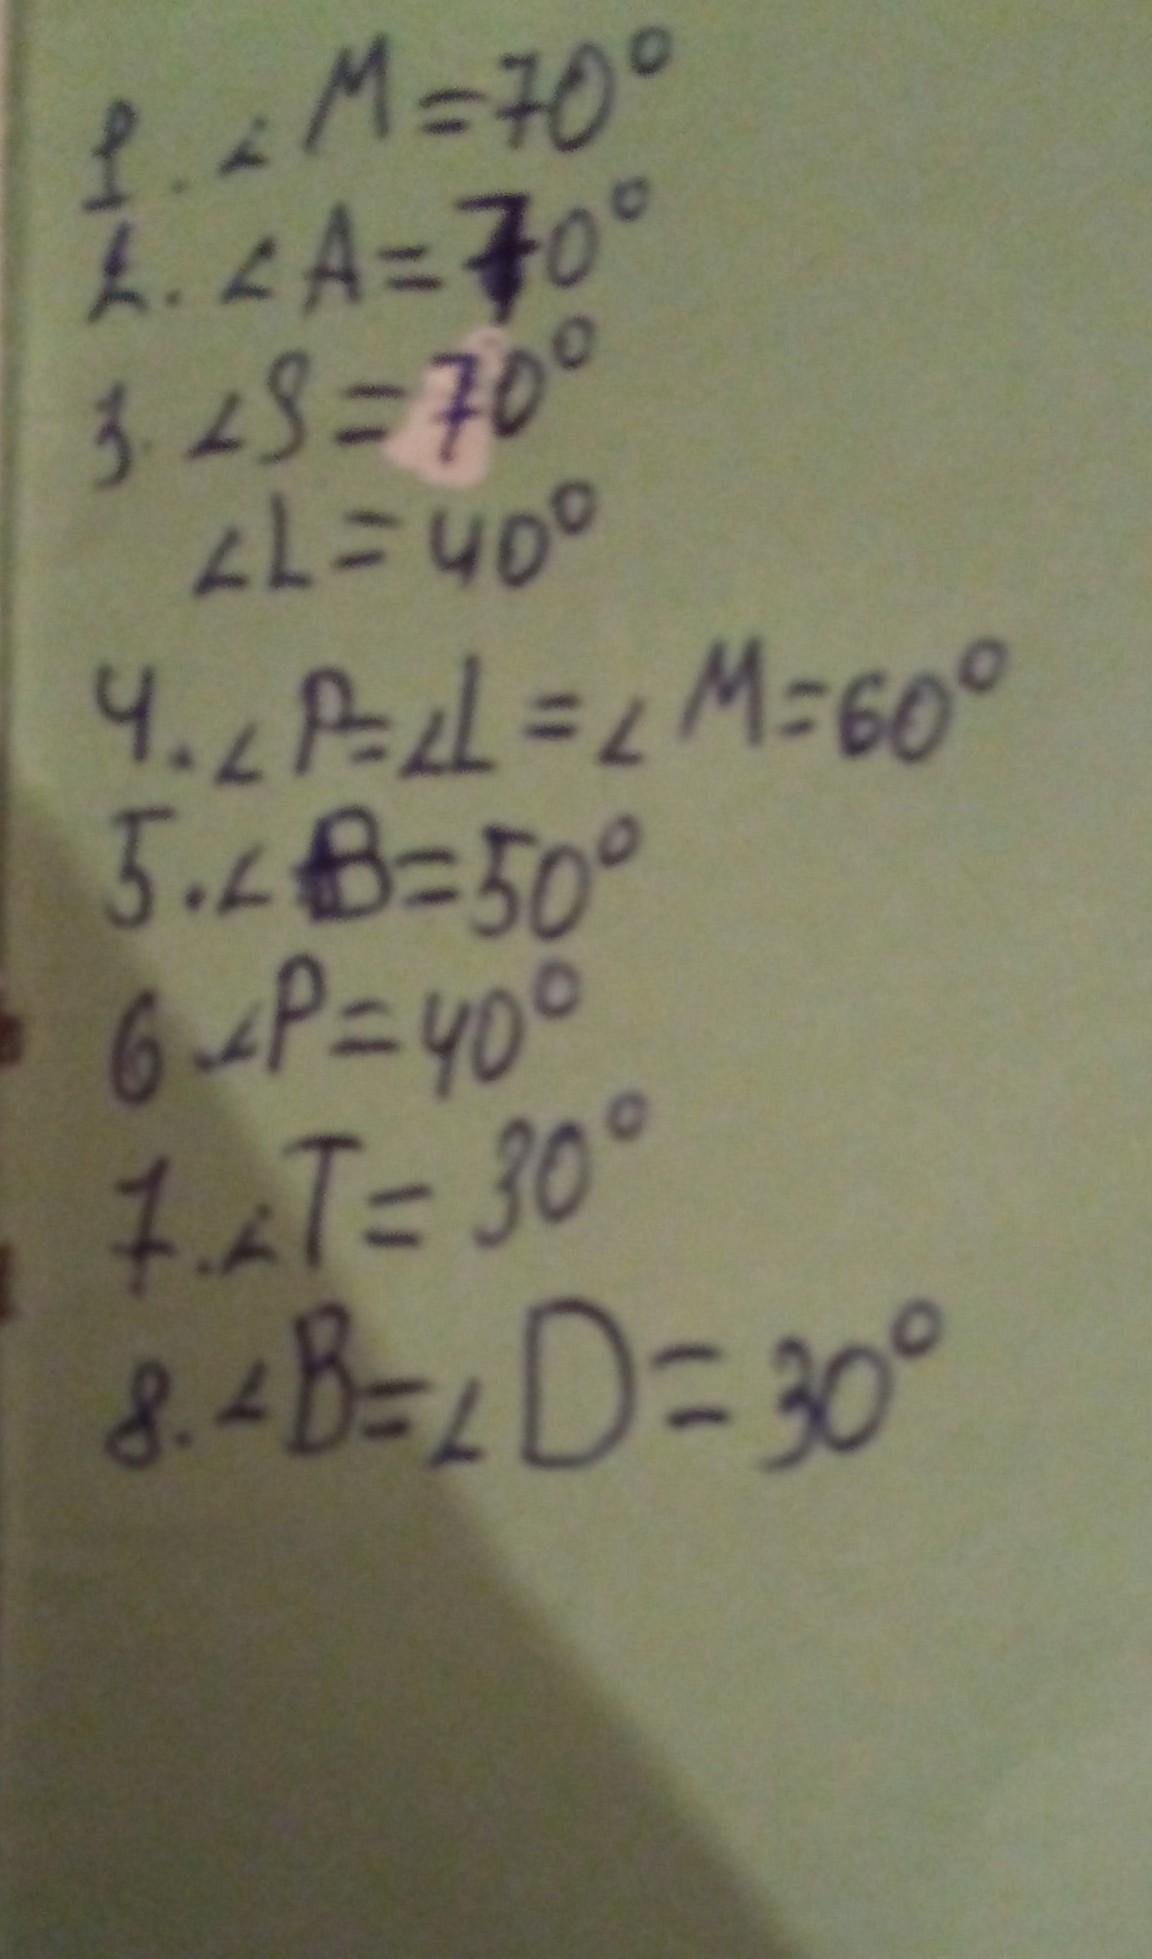 1. ∠M=70°
2. ∠A=70°
3. ∠S=70°
∠L=40°
4. ∠P=∠L=∠M=60°
5. ∠B=50°
6 ∠P=40°
7. ∠T=30°
8. ∠B=∠D=30°